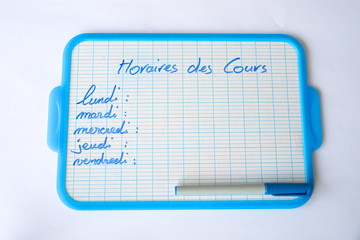 Horaires des Cours
lundi :
mardi :
mercredi :
jeudi :
vendredi :